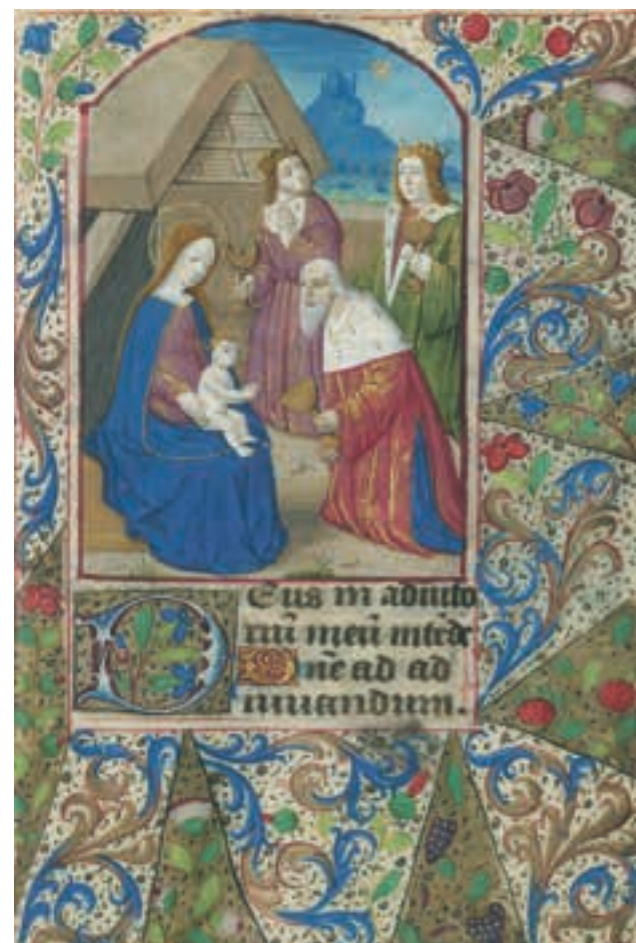 Deus in adiuto
riū meū intēde
Dn̄e ad ad
iuuandum.